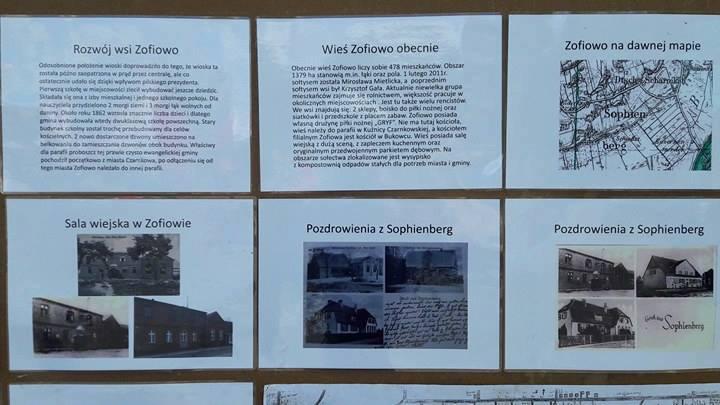 Rozwój wsi Zofiowo
Odosobnione położenie wioski doprowadziło do tego, że wioska ta
została późno zaopatrzona w prąd przez centralę, ale co
ostatecznie udało się dzięki wpływom polskiego prezydenta.
Pierwszą szkołę w miejscowości zlecił wybudować jeszcze dziedzic.
Składała się ona z izby mieszkalnej i jednego szkolnego pokoju. Dla
nauczyciela przydzielono 2 morgi ziemi i 3 morgi łąk wolnych od
daniny. Około roku 1862 wzrosła znacznie liczba dzieci i dlatego
gmina wybudowała wtedy dwuklasową szkołę powszechną. Stary
budynek szkolny został trochę przebudowany dla celów
kościelnych. 2 nowo dostarczone dzwony umieszczono na
belkowaniu do zamieszczania dzwonów obok budynku. Właściwy
dla parafii proboszcz tej prawie czysto ewangelickiej gminy
pochodził początkowo z miasta Czarnkowa, po odłączeniu się od
tego miasta Zofiowo należało do innej parafii.
Wieś Zofiowo obecnie
Obecnie wieś Zofiowo liczy sobie 478 mieszkańców. Obszar
1379 ha stanowią m.in. łąki oraz pola. 1 lutego 2011r.
sołtysem została Mirosława Mietlicka, a poprzednim
sołtysem wsi był Krzysztof Gała. Aktualnie niewielka grupa
mieszkańców zajmuje się rolnictwem, większość pracuje w
okolicznych miejscowościach. Jest tu także wielu rencistów.
We wsi znajdują się: 2 sklepy, boisko do piłki nożnej oraz
siatkówki i przedszkole z placem zabaw. Zofiowo posiada
własną drużynę piłki nożnej „GRYF”. Nie ma tutaj kościoła,
wieś należy do parafii w Kuźnicy Czarnkowskiej, a kościołem
filialnym Zofiowa jest kościół w Bukowcu. Wieś posiada salę
wiejską z dużą sceną, z zapleczem kuchennym oraz
oryginalnym przedwojennym parkietem dębowym. Na
obszarze sołectwa zlokalizowane jest wysypisko
z kompostownią odpadów stałych dla potrzeb miasta i gminy.
Zofiowo na dawnej mapie
Sophien
berg
Sala wiejska w Zofiowie
Pozdrowienia z Sophienberg
Pozdrowienia z Sophienberg
Sophienberg